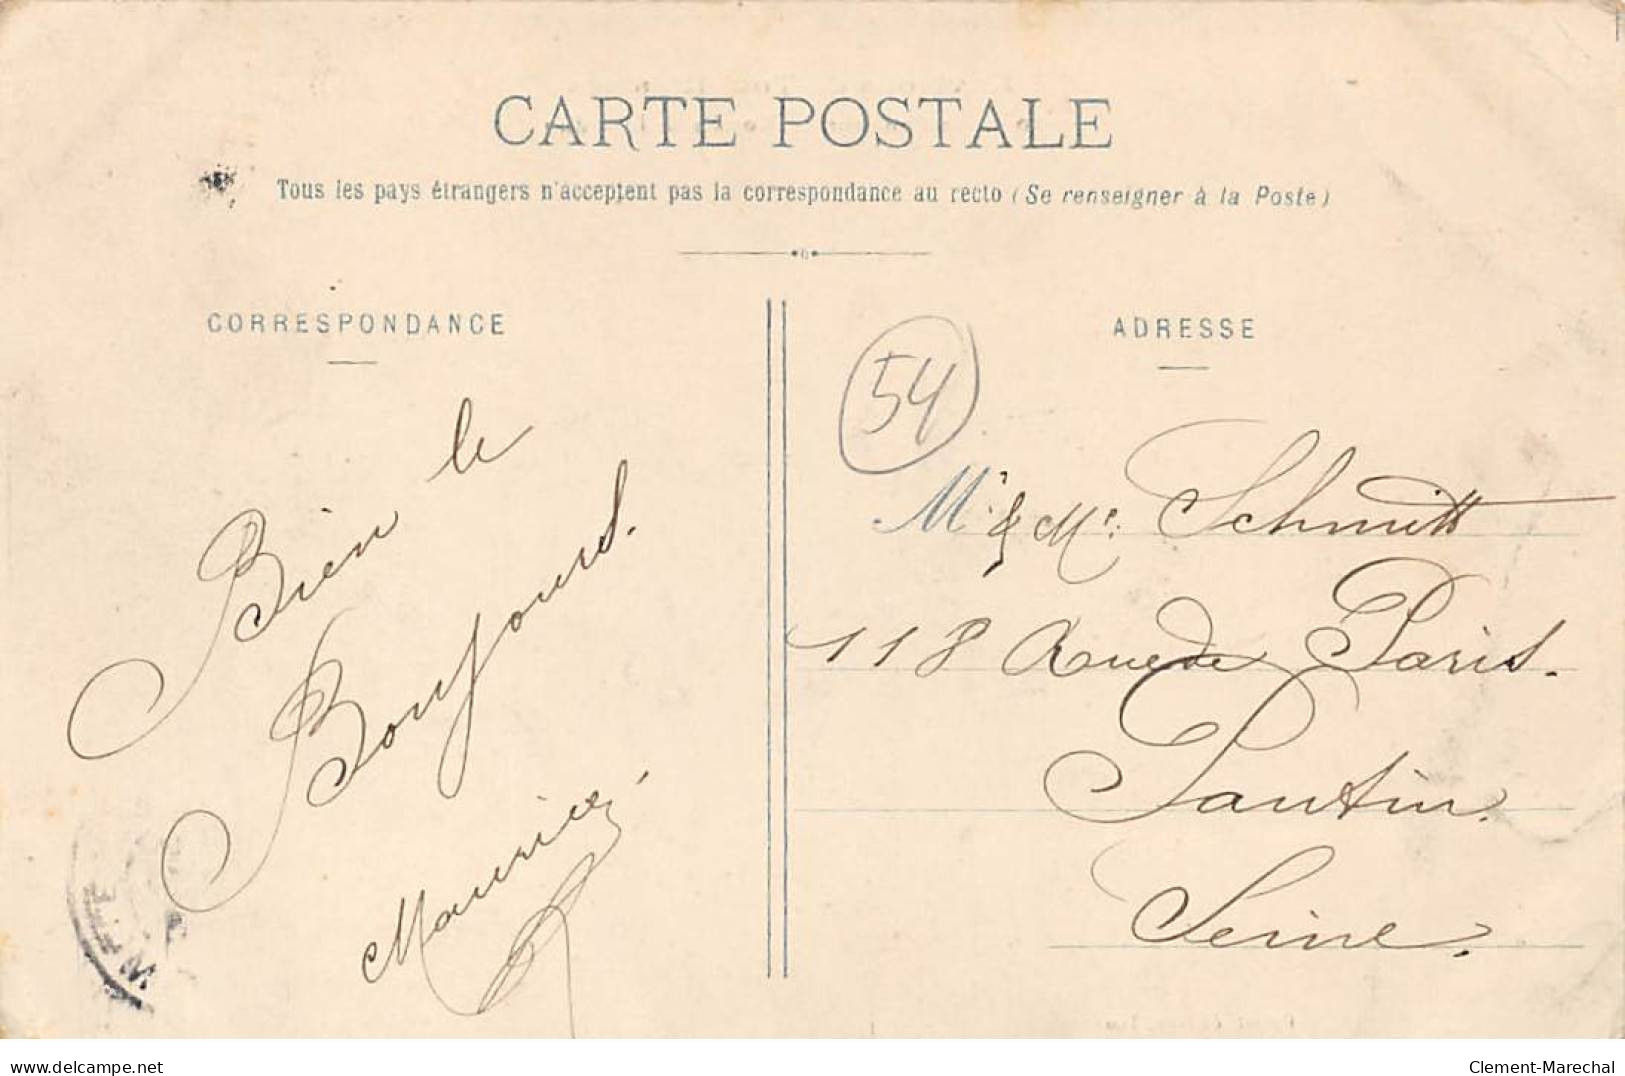 CARTE POSTALE
Tous les pays étrangers n'acceptent pas la correspondance au recto (Se renseigner à la Poste)
CORRESPONDANCE
Bien le
Bonjours.
Maurice
ADRESSE
54
Mr & Me. Schmitt
118 Rue de Paris.
Pantin.
Seine.
www.delcampe.net
Clement-Marechal